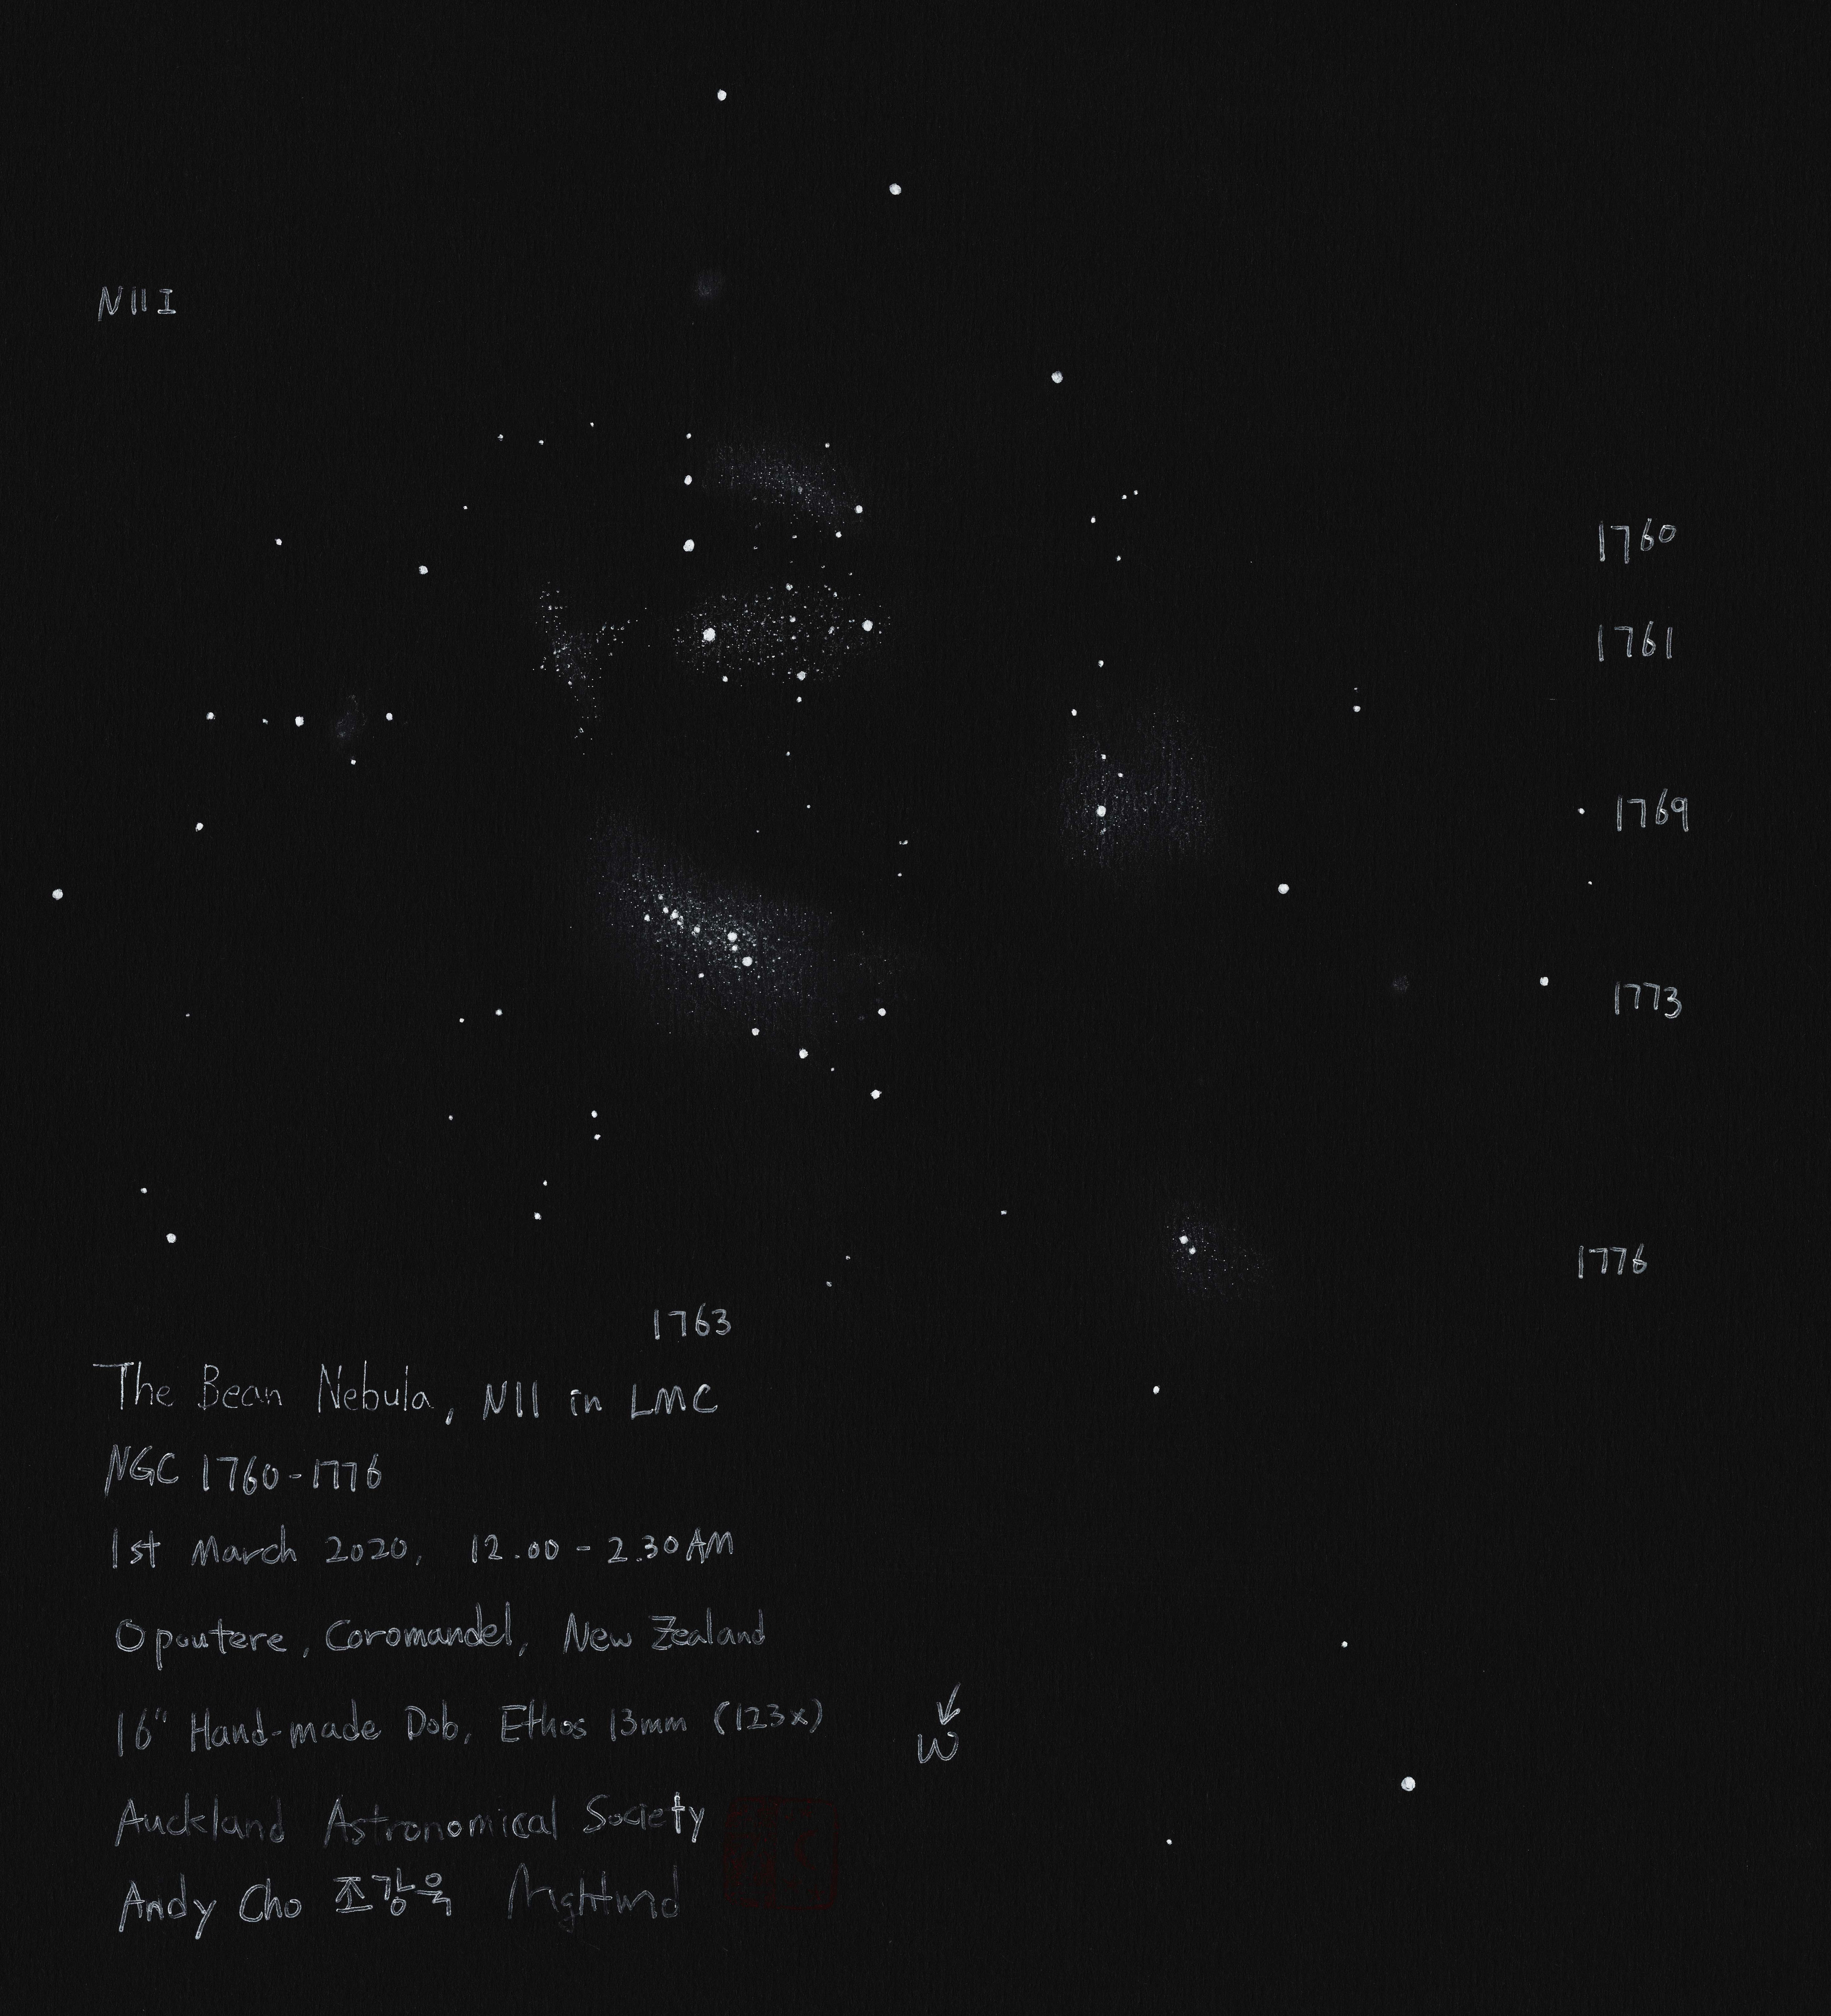 N11I
1760
1761
1769
1773
1776
1763
The Bean Nebula, N11 in LMC
NGC 1760-1776
1st March 2020, 12.00 - 2.30AM
Opoutere, Coromandel, New Zealand
16" Hand-made Dob, Ethos 13mm (123x)
W
Auckland Astronomical Society
Andy Cho 조강욱 Nightwid